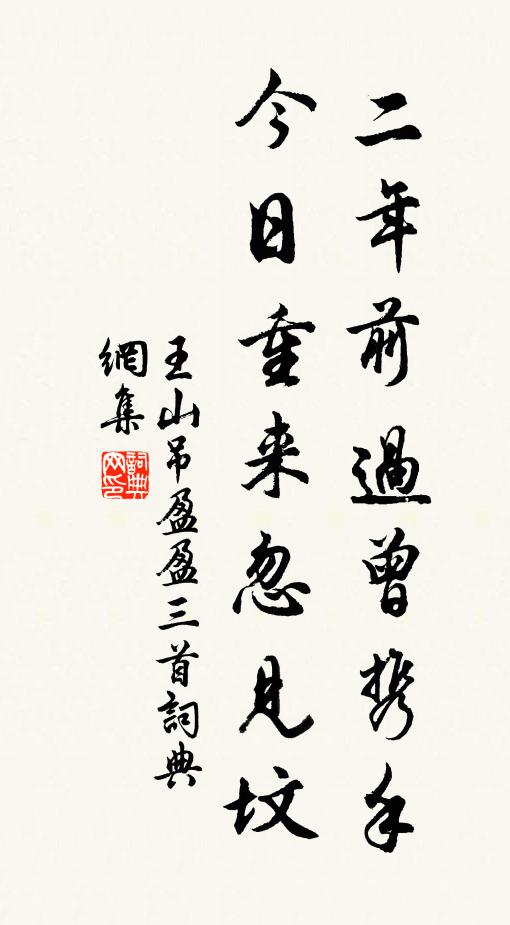 二年前過曾携手
今日重来忽見坟
王山吊盈盈三首詞典
網集
詞典
网印